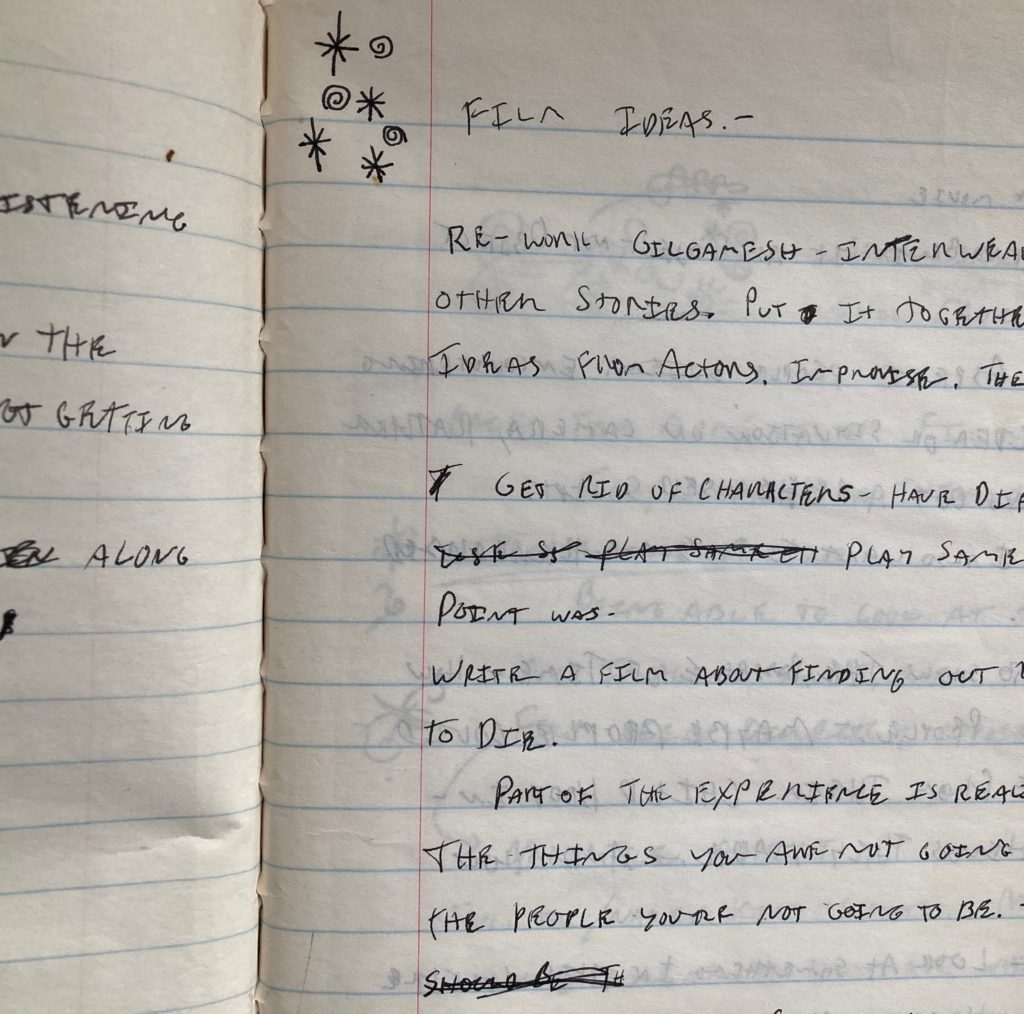 ISTENING
THE
GETTING
ALONG
FILM IDEAS.-
RE-WORK GILGAMESH - INTERWEA
OTHER STORIES. PUT IT TOGETHE
IDEAS FROM ACTORS. IMPROVISE. THE
GET RID OF CHARACTERS - HAVE DIF
PLAY SAME PLAY SAME
POINT WAS-
WRITE A FILM ABOUT FINDING OUT
TO DIE.
PART OF THE EXPERIENCE IS REAL
THE THINGS YOU ARE NOT GOING
THE PEOPLE YOU'RE NOT GOING TO BE.
SHOULD BE TH